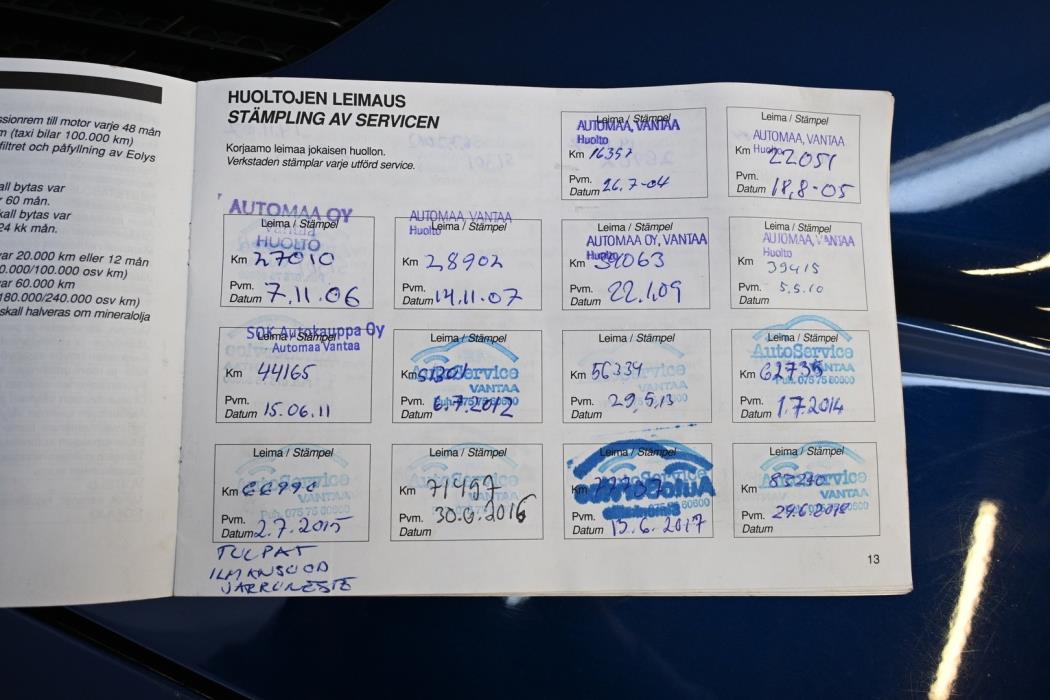 ssionrem till motor varje 48 mån
m (taxi bilar 100.000 km)
filtret och påfyllning av Eolys
all bytas var
60 mån.
kall bytas var
24 kk mån.
var 20.000 km eller 12 mån
0.000/100.000 osv km)
var 60.000 km
180.000/240.000 osv km)
skall halveras om mineralolja
HUOLTOJEN LEIMAUS
STÄMPLING AV SERVICEN
Korjaamo leimaa jokaisen huollon.
Verkstaden stämplar varje utförd service.
Leima / Stämpel
AUTOMAA, VANTAA
Huolto
Km 16357
Pvm.
Datum 26.7-04
Leima / Stämpel
AUTOMAA, VANTAA
Huolto
Km 22051
Pvm.
Datum 18,8-05
AUTOMAA OY
Leima / Stämpel
HUOLTO
Km 27010
Pvm.
Datum 7.11.06
AUTOMAA, VANTAA
Leima / Stämpel
Huolto
Km 28902
Pvm.
Datum 14.11-07
Leima / Stämpel
AUTOMAA OY, VANTAA
Huolto
Km 34063
Pvm.
Datum 22.1.09
Leima / Stämpel
AUTOMAA, VANTAA
Huolto
Km 39415
Pvm.
Datum 5.5.10
SOK Autokauppa Oy
Leima / Stämpel
Automaa Vantaa
Km 44165
Pvm.
Datum 15.06.11
Leima / Stämpel
AutoService
Km 51301
VANTAA
Pvm.
Puh. 075 75 80600
Datum 6.7.2012
Leima / Stämpel
Km 56334
VANTAA
Pvm.
Datum 29.5.13
Leima / Stämpel
AutoService
Km 62735
VANTAA
Puh. 075 75 80600
Pvm.
Datum 1.7.2014
Leima / Stämpel
AutoService
Km 66990
VANTAA
Puh. 075 75 80600
Pvm.
Datum 2.7.2015
Leima / Stämpel
AutoService
Km 71497
VANTAA
Pvm. 30.6.2016
Datum
Leima / Stämpel
AutoService
Km
Pvm.
Datum 15.6.2017
Leima / Stämpel
AutoService
Km
VANTAA
Pvm.
Datum
TULPAT
ILMANSUOD
JARRUNESTE
13